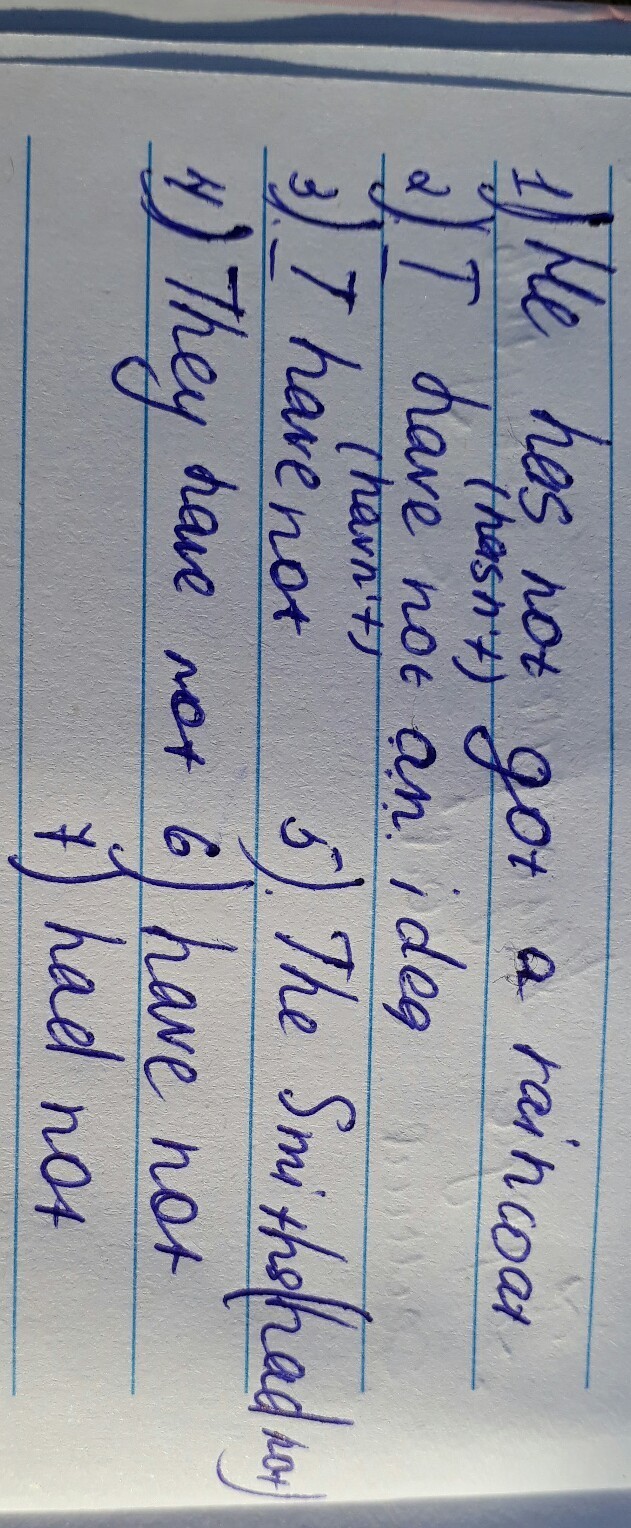 1) He has not got a raincoat
(hasn't)
2) I have not an idea
(havn't)
3) I have not 5). The Smiths (had not)
4) They have not 6) have not
7) had not